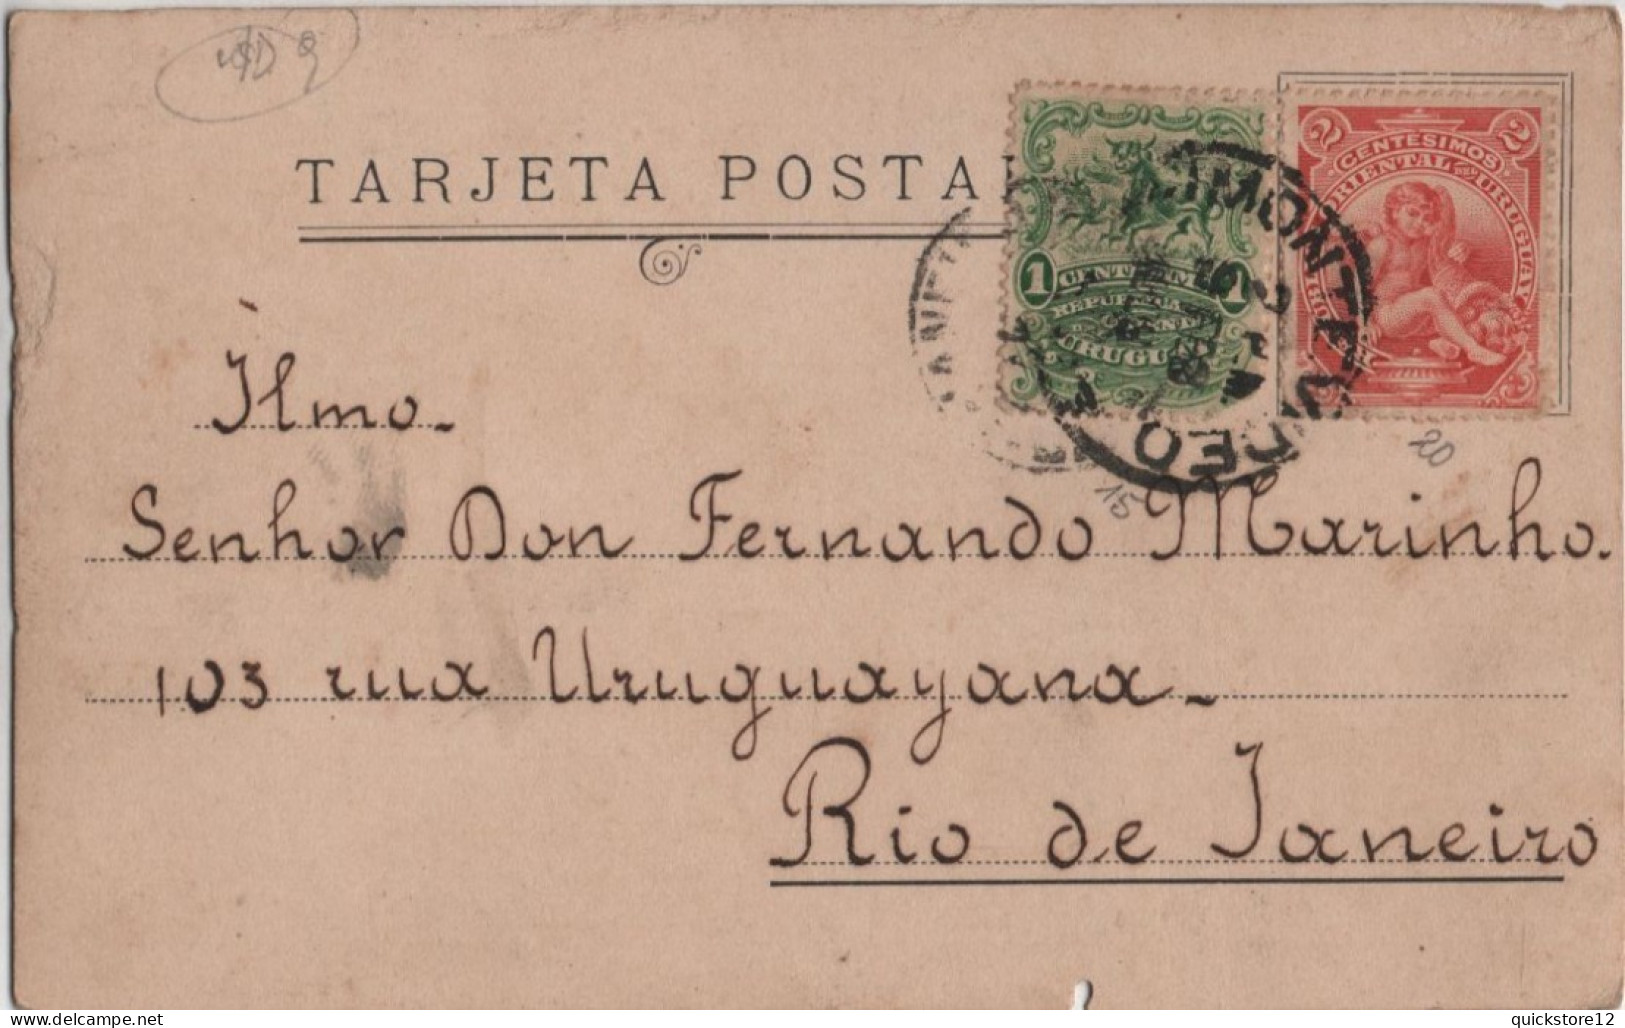 USD 9
TARJETA POSTAL
1 CENTESIMO 1
REPUBLICA
ORIENTAL
URUGUAY
2 CENTESIMOS 2
ORIENTAL DEL URUGUAY
MONTEVIDEO
15
20
Ilmo.
Senhor Don Fernando Marinho.
103 rua Uruguayana.
Rio de Janeiro
www.delcampe.net
quickstore12